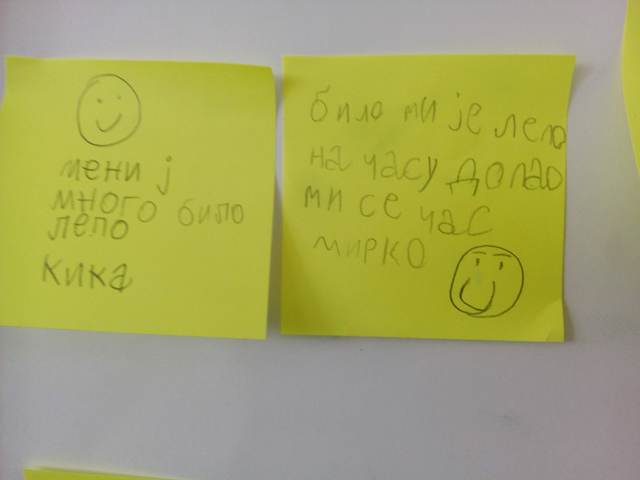 мени ј
много било
лепо
кика
било ми је лепо
на часу допао
ми се час
мирко